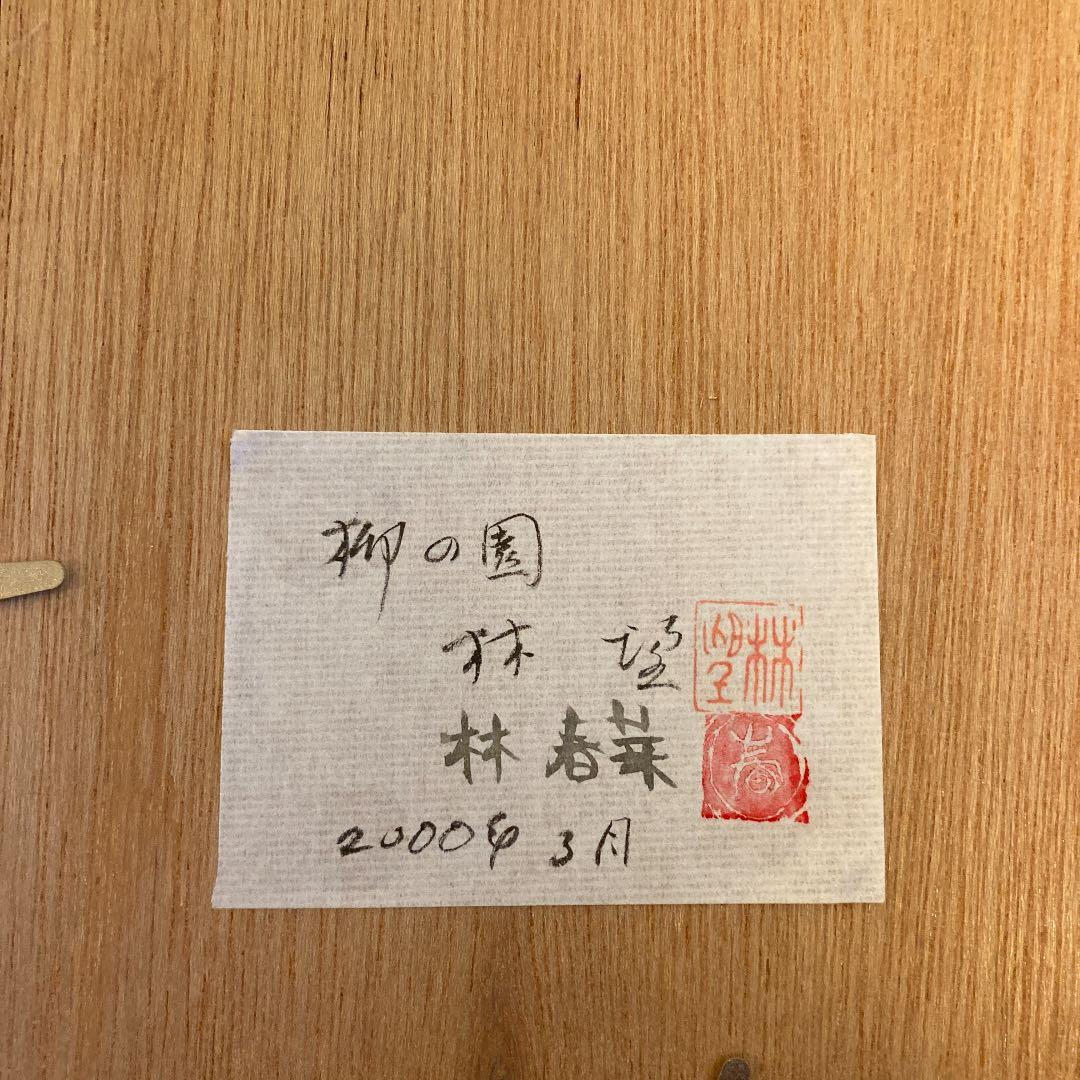 柳の園
林 望
林望
林 春菜
春
2000年 3月